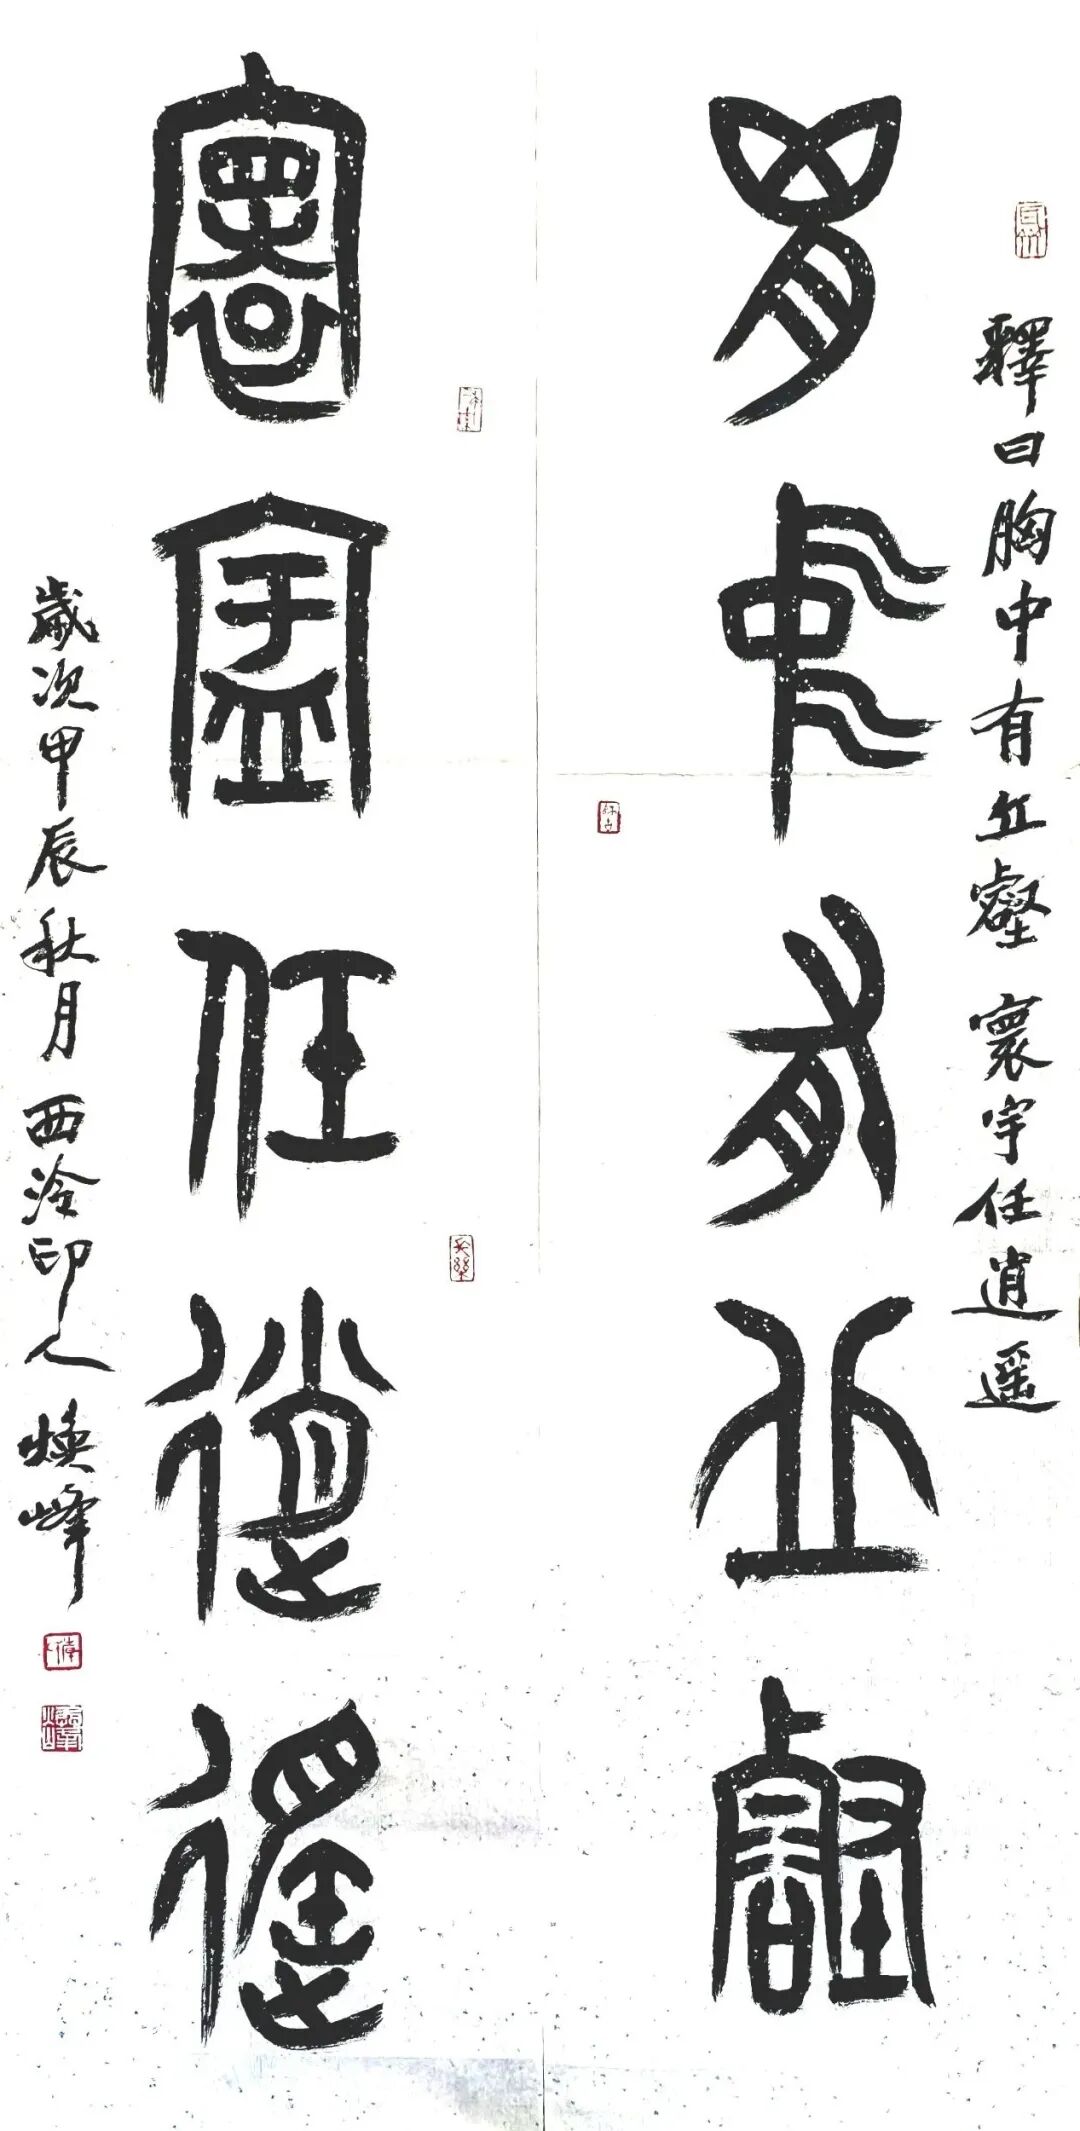 釋曰胸中有丘壑 寰宇任逍遥
胸中有丘壑
寰宇任逍遥
歲次甲辰秋月西泠印人 焕峰